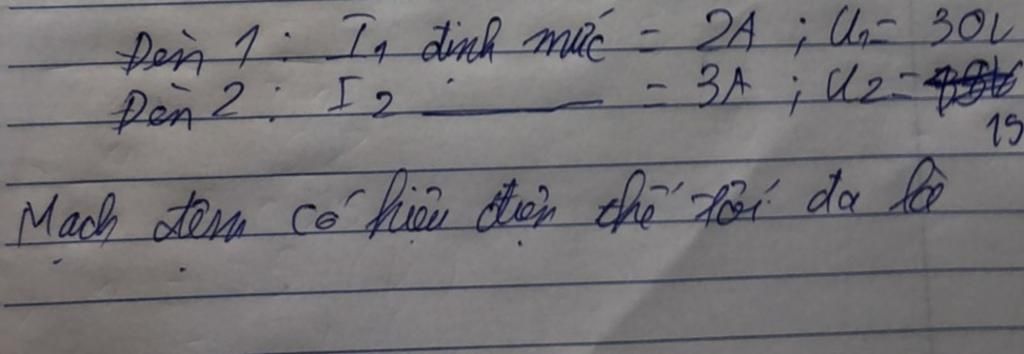 Đèn 1: I1 định mức = 2A ; U1 = 30V
Đèn 2: I2 ——— = 3A ; U2 =
15
Mạch điện có hiệu điện thế tối đa là